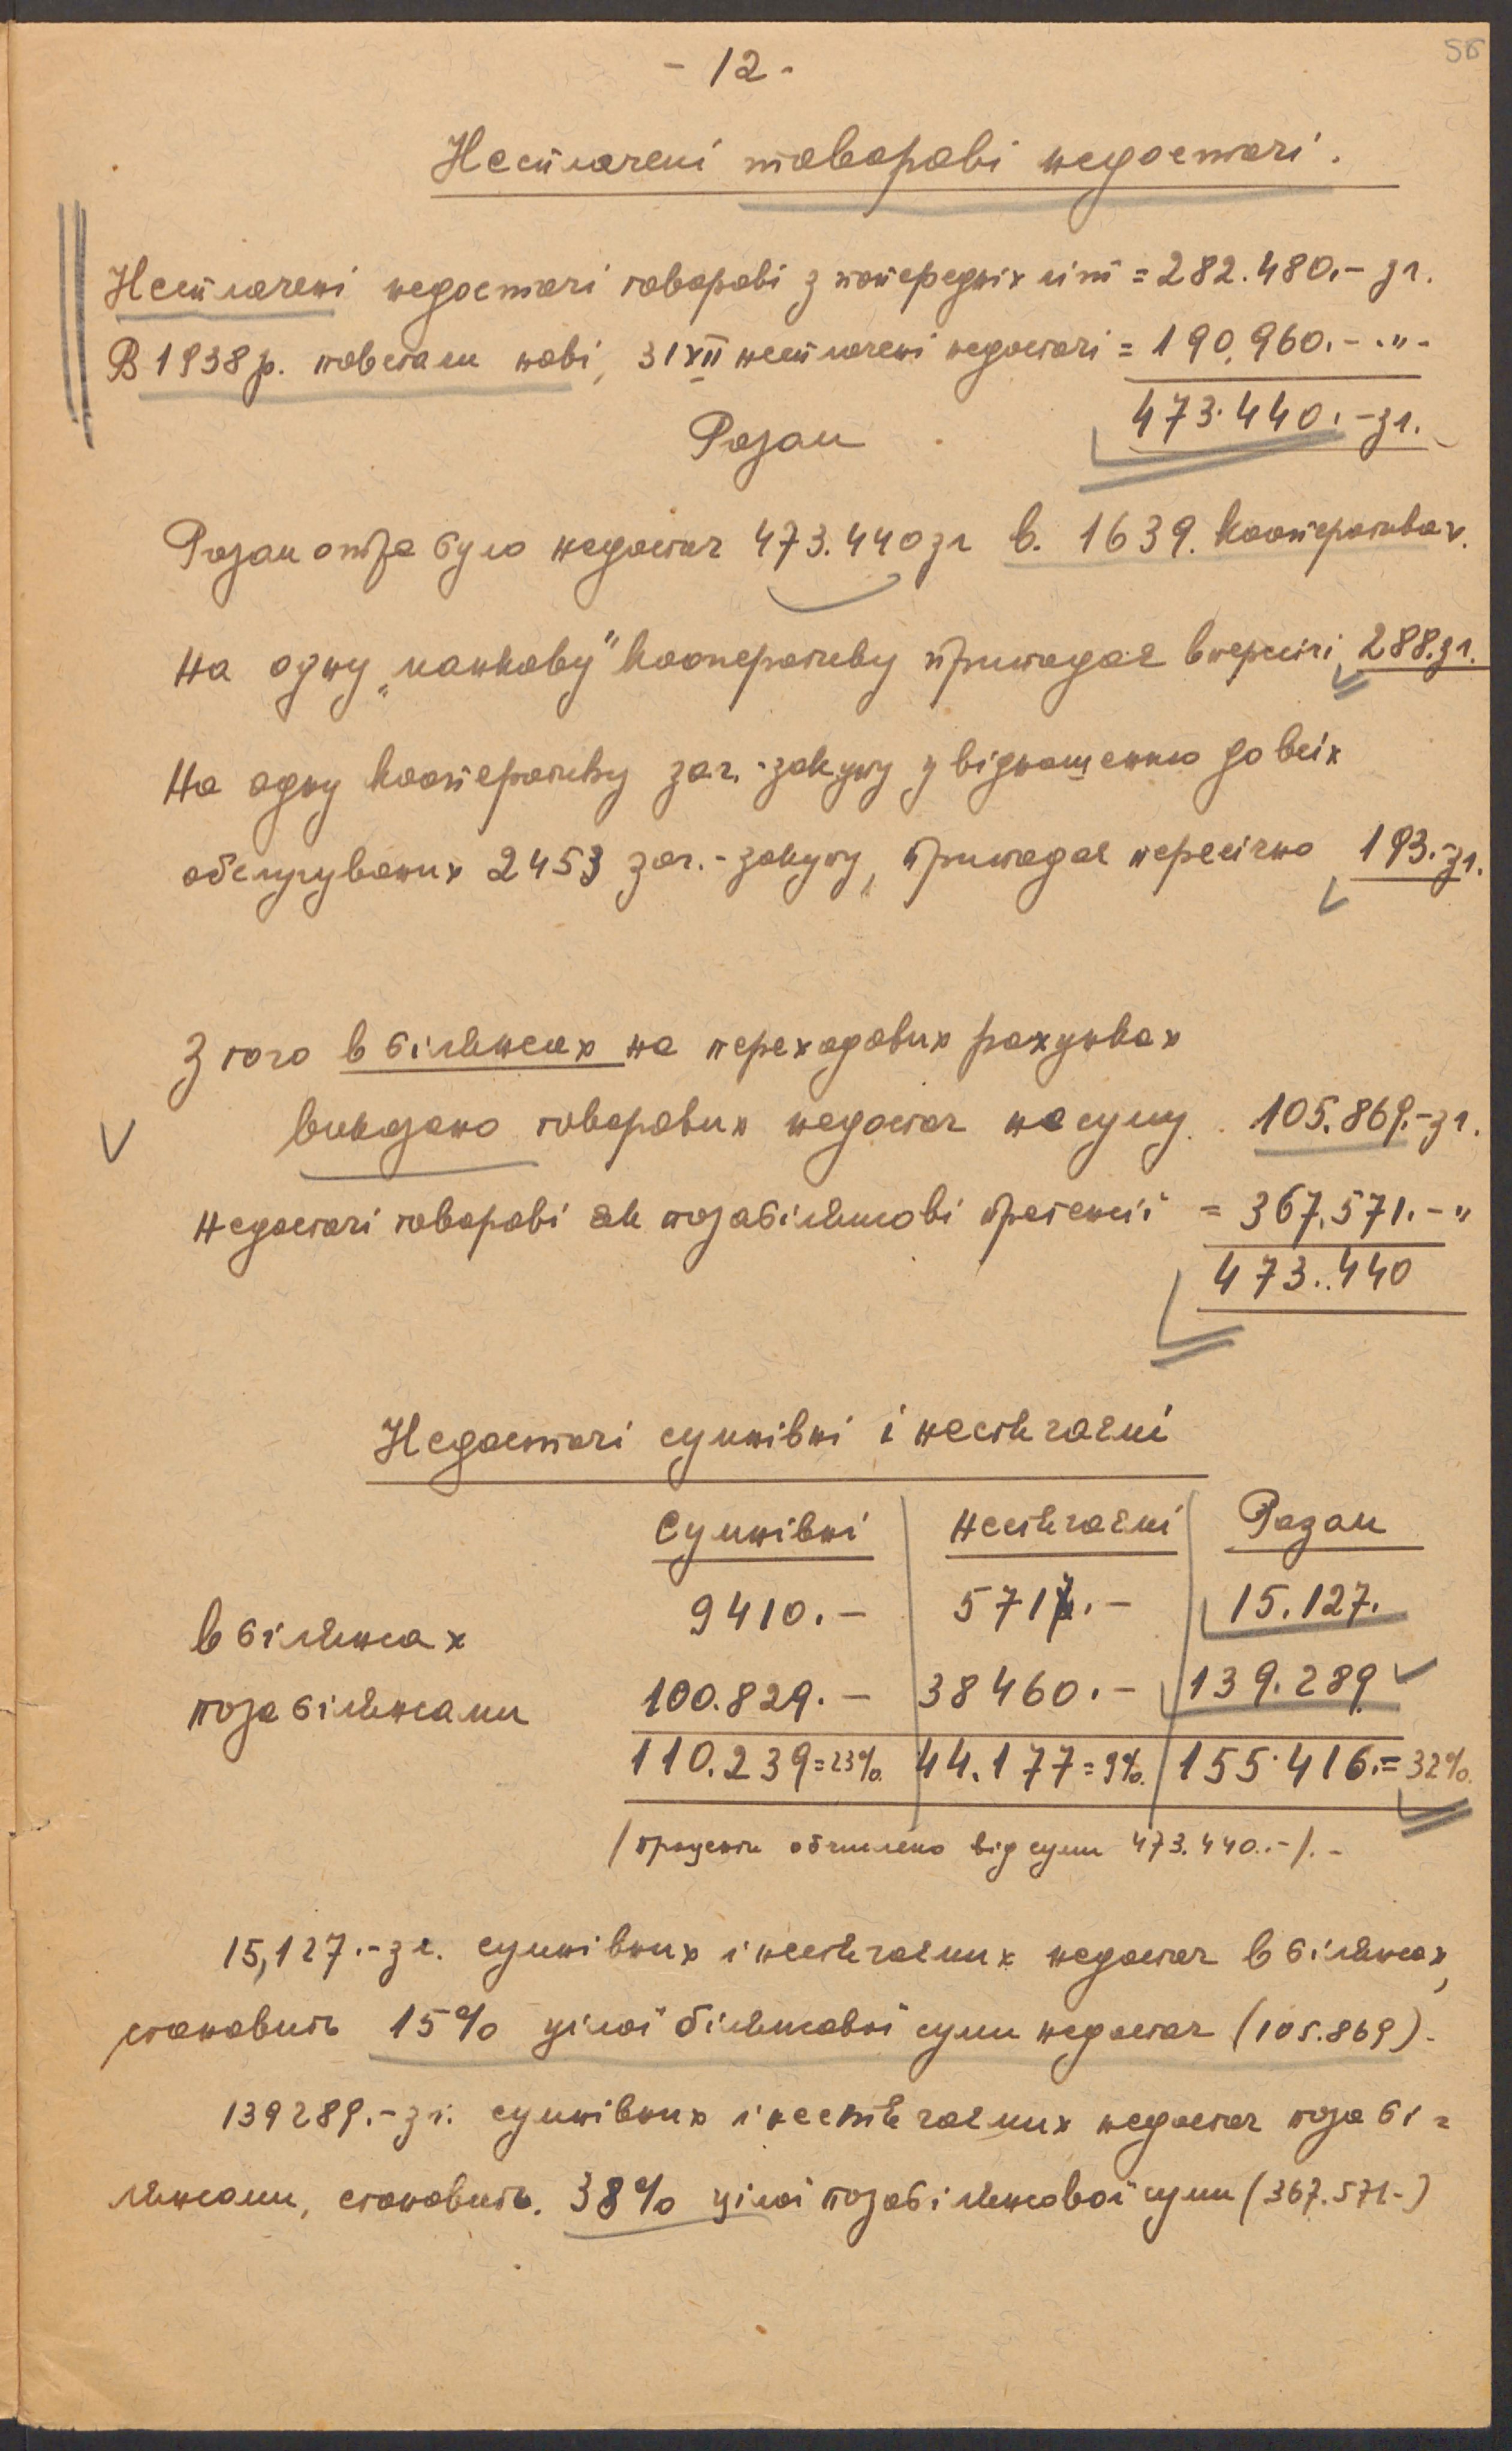 56
- 12 -
Несплачені товарові недостачі.
Несплачені недостачі товарові з попередніх літ = 282.480.- зл.
В 1938 р. повстали нові, 31 XII несплачені недостачі = 190.960.- -"-
Разом 473.440.- зл.
Разом отже було недостач 473.440 зл в. 1639. кооперативах.
На одну „манкову" кооперативу припадає впересічі 288.зл.
На одну кооперативу заг.-закупу у відношенню до всіх
обслугуваних 2453 заг.-закупу, припадає пересічно 193.-зл.
З того в білянсах на переходових рахунках
виказано товарових недостач на суму 105.869.-зл.
Недостачі товарові як позабілянсові претенсії = 367.571.- "
473.440
Недостачі сумнівні і нестягаємі
Сумнівні Нестягаємі Разом
в білянсах 9410.- 5717.- 15.127.
поза білянсами 100.829.- 38460.- 139.289
110.239=23% 44.177=9% 155.416.=32%
/проценти обчислено від суми 473.440.-/.-
15,127.-зл. сумнівних і нестягаємих недостач в білянсах,
становить 15% цілої білянсової суми недостач (105.869).
139289.-зл. сумнівних і нестягаємих недостач поза бі=
лянсами, становить. 38% цілої позабілянсової суми (367.571.-)